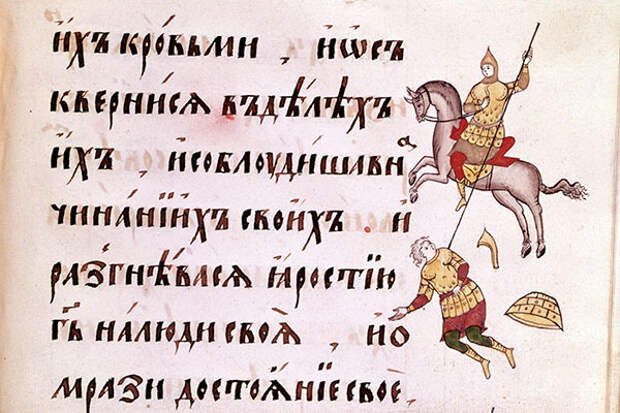 и́хъ кро́вьми , иѡсъ
кверни́сѧ въдѣ́лѣхъ
и́хъ , исоблоуди́ша вна
чина́нїихъ свои́хъ . и
разгнѣ́васѧ ꙗ́ростїю
г҃ь на́люди своѧ̀ , ио
мрази достоѧ́нїе свое